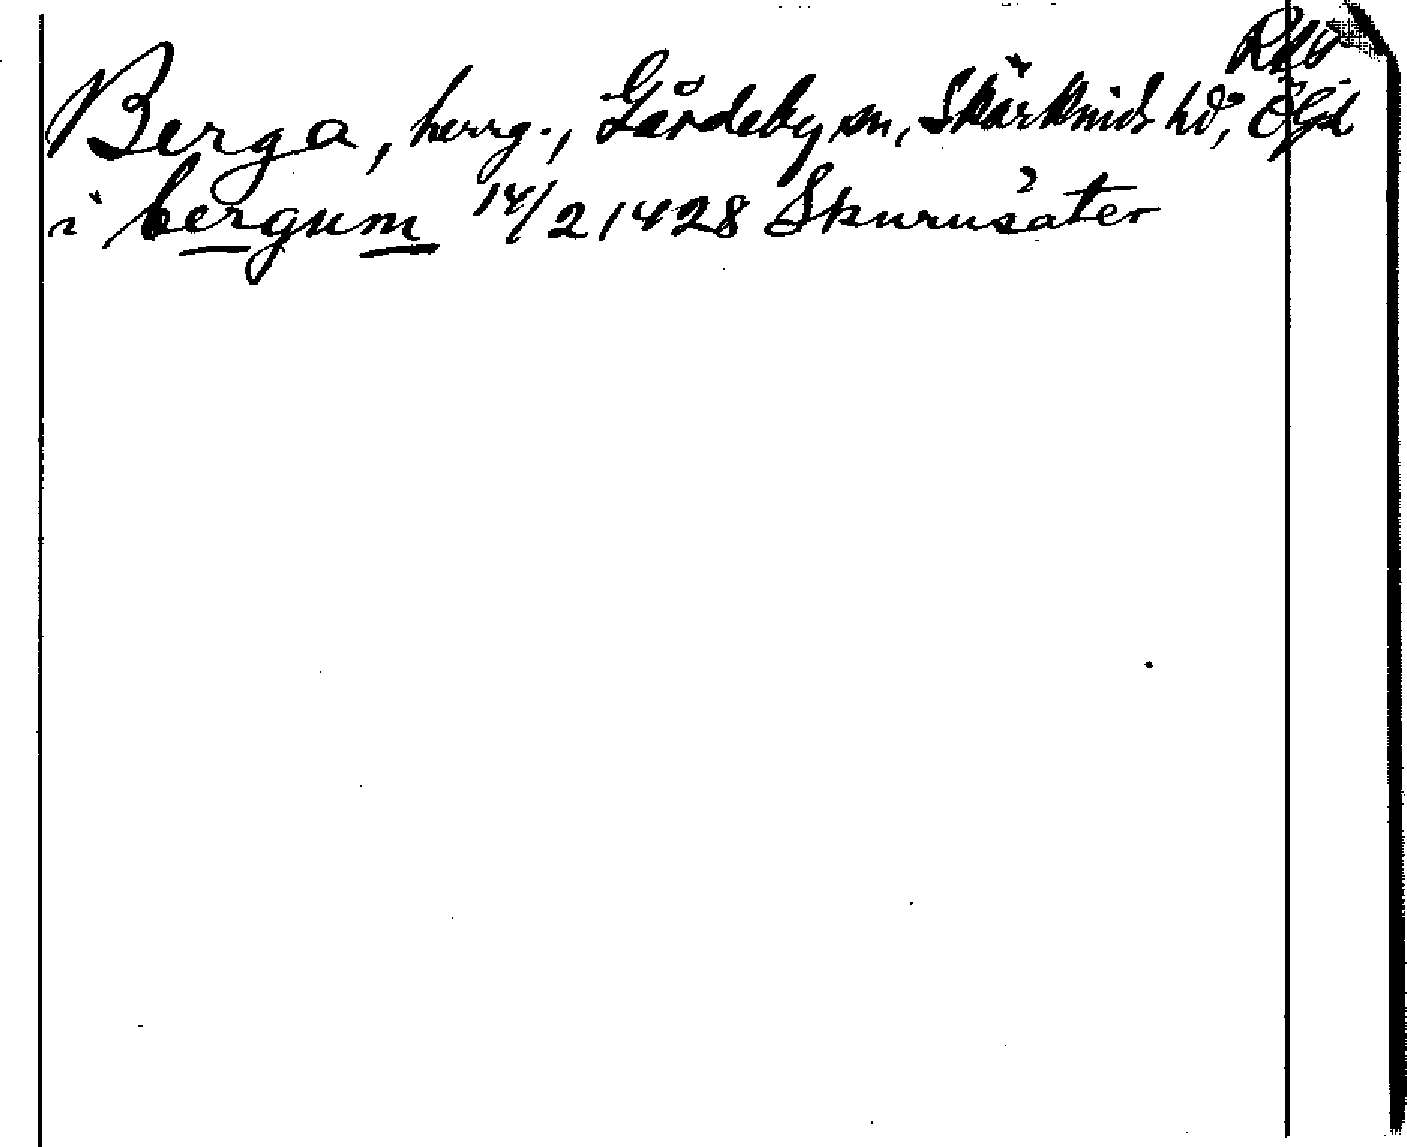 Berga, herrg., Gårdeby sn, Skärkinds hd, Ögd
i bergum 14/2 1428 Skurusäter